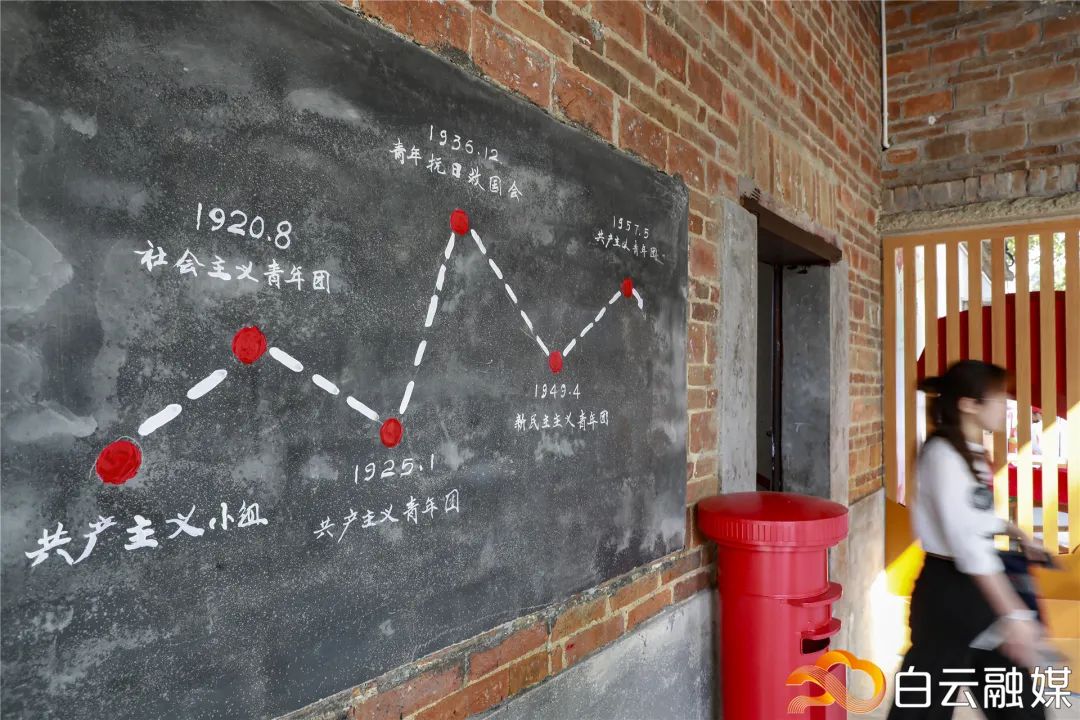 共产主义小组
1920.8
社会主义青年团
1925.1
共产主义青年团
1936.12
青年抗日救国会
1949.4
新民主主义青年团
1957.5
共产主义青年团
白云融媒